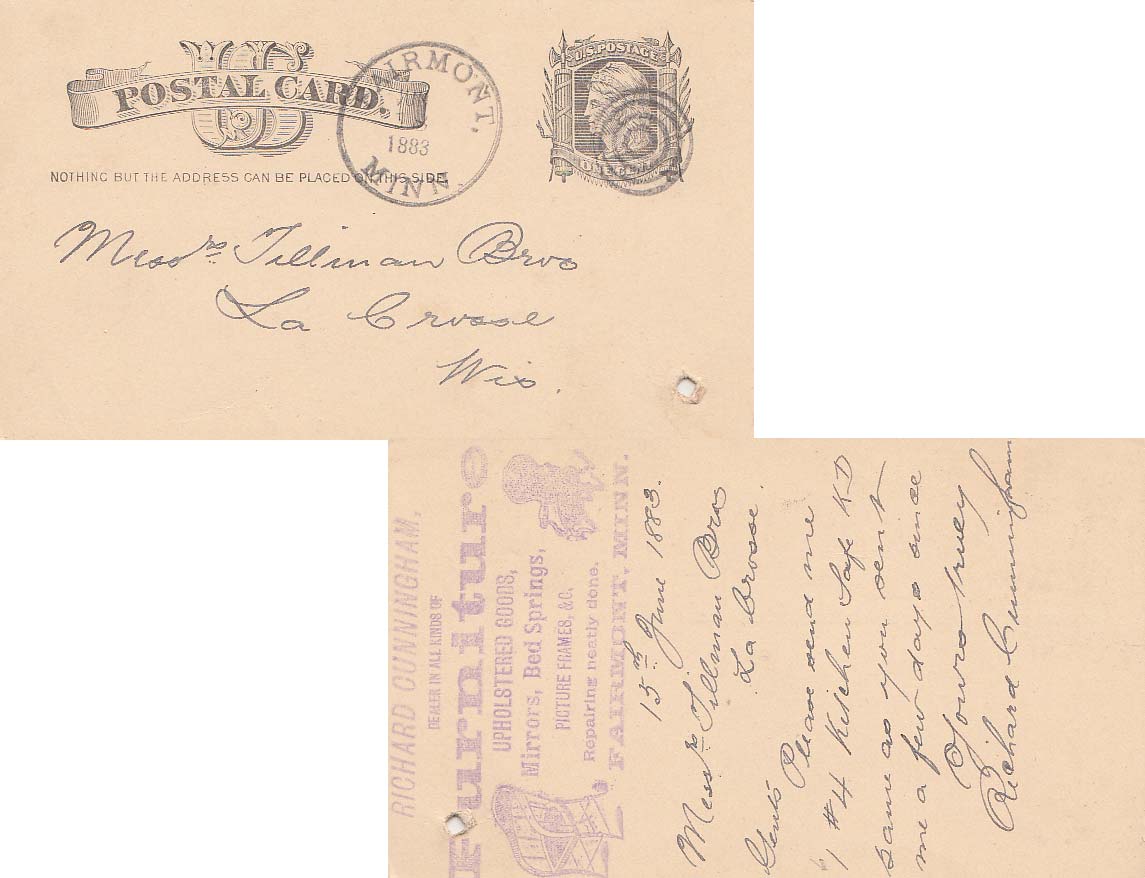 US
POSTAL CARD.
NOTHING BUT THE ADDRESS CAN BE PLACED ON THIS SIDE.
FAIRMONT,
1883
MINN.
U.S. POSTAGE
ONE CENT
Messrs Tillman Bros
La Crosse
Wis.
RICHARD CUNNINGHAM,
DEALER IN ALL KINDS OF
Furniture
UPHOLSTERED GOODS,
Mirrors, Bed Springs,
PICTURE FRAMES, &C,
Repairing neatly done.
FAIRMONT, MINN.
15th June 1883.
Messrs Tillman Bros
La Crosse.
Gents
Please send me
1 #4 Kitchen Safe KD
same as you sent
me a few days since
Yours truly
Richard Cunningham